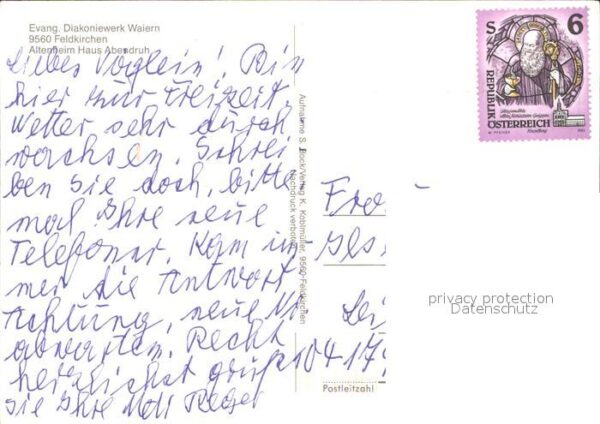 Evang. Diakoniewerk Waiern
9560 Feldkirchen
Altenheim Haus Abendruh
Liebes Vöglein! Bin
hier zur Freizeit.
Wetter sehr durch
wachsen. Schrei
ben Sie doch, bitte
mal Ihre neue
Telefonnr. Kam im
mer die Antwort
Achtung, neue Nr
abwarten. Recht
herzlichst grüßt
Sie Ihre
Aufnahme S. Bock/Verlag K. Koblmüller, 9560 Feldkirchen
Nachdruck verboten
S 6
REPUBLIK
ÖSTERREICH
Frau
Ils
Lei
0417
privacy protection
Datenschutz
Postleitzahl